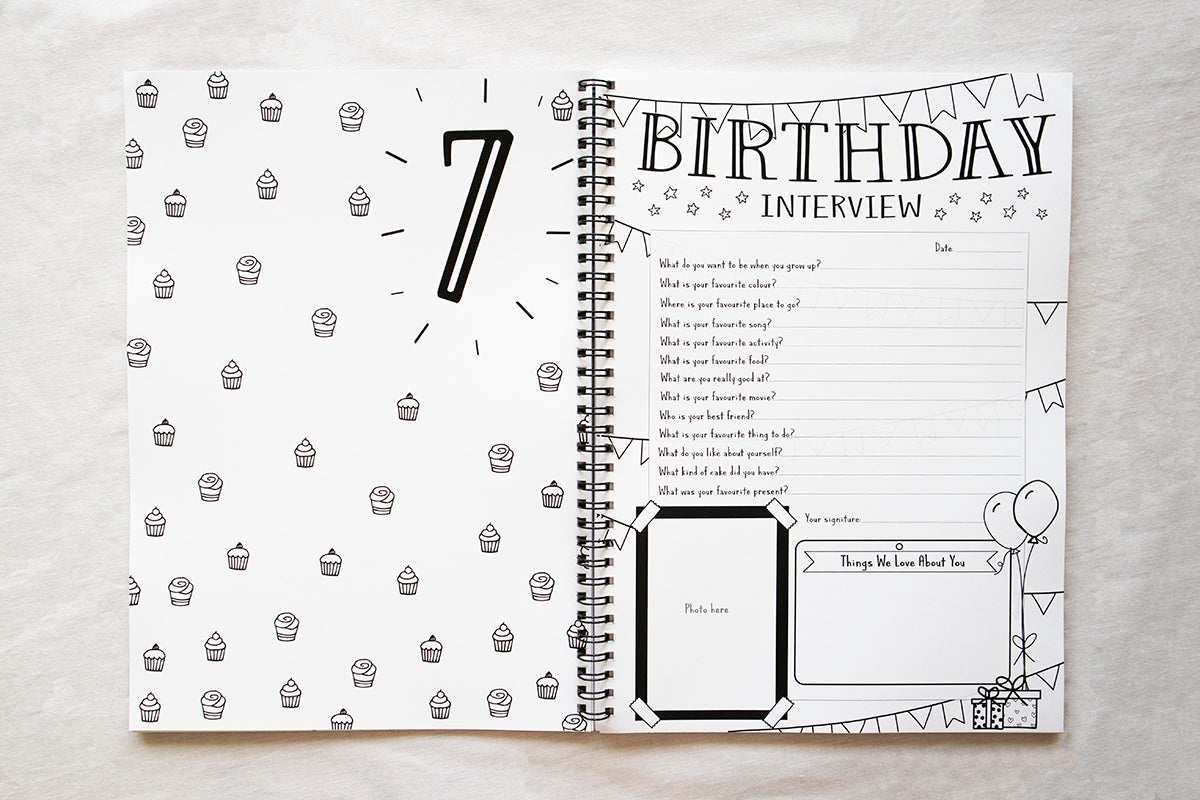 7
BIRTHDAY
INTERVIEW
Date:
What do you want to be when you grow up?
What is your favourite colour?
Where is your favourite place to go?
What is your favourite song?
What is your favourite activity?
What is your favourite food?
What are you really good at?
What is your favourite movie?
Who is your best friend?
What is your favourite thing to do?
What do you like about yourself?
What kind of cake did you have?
What was your favourite present?
Your signiture:
Things We Love About You
Photo here